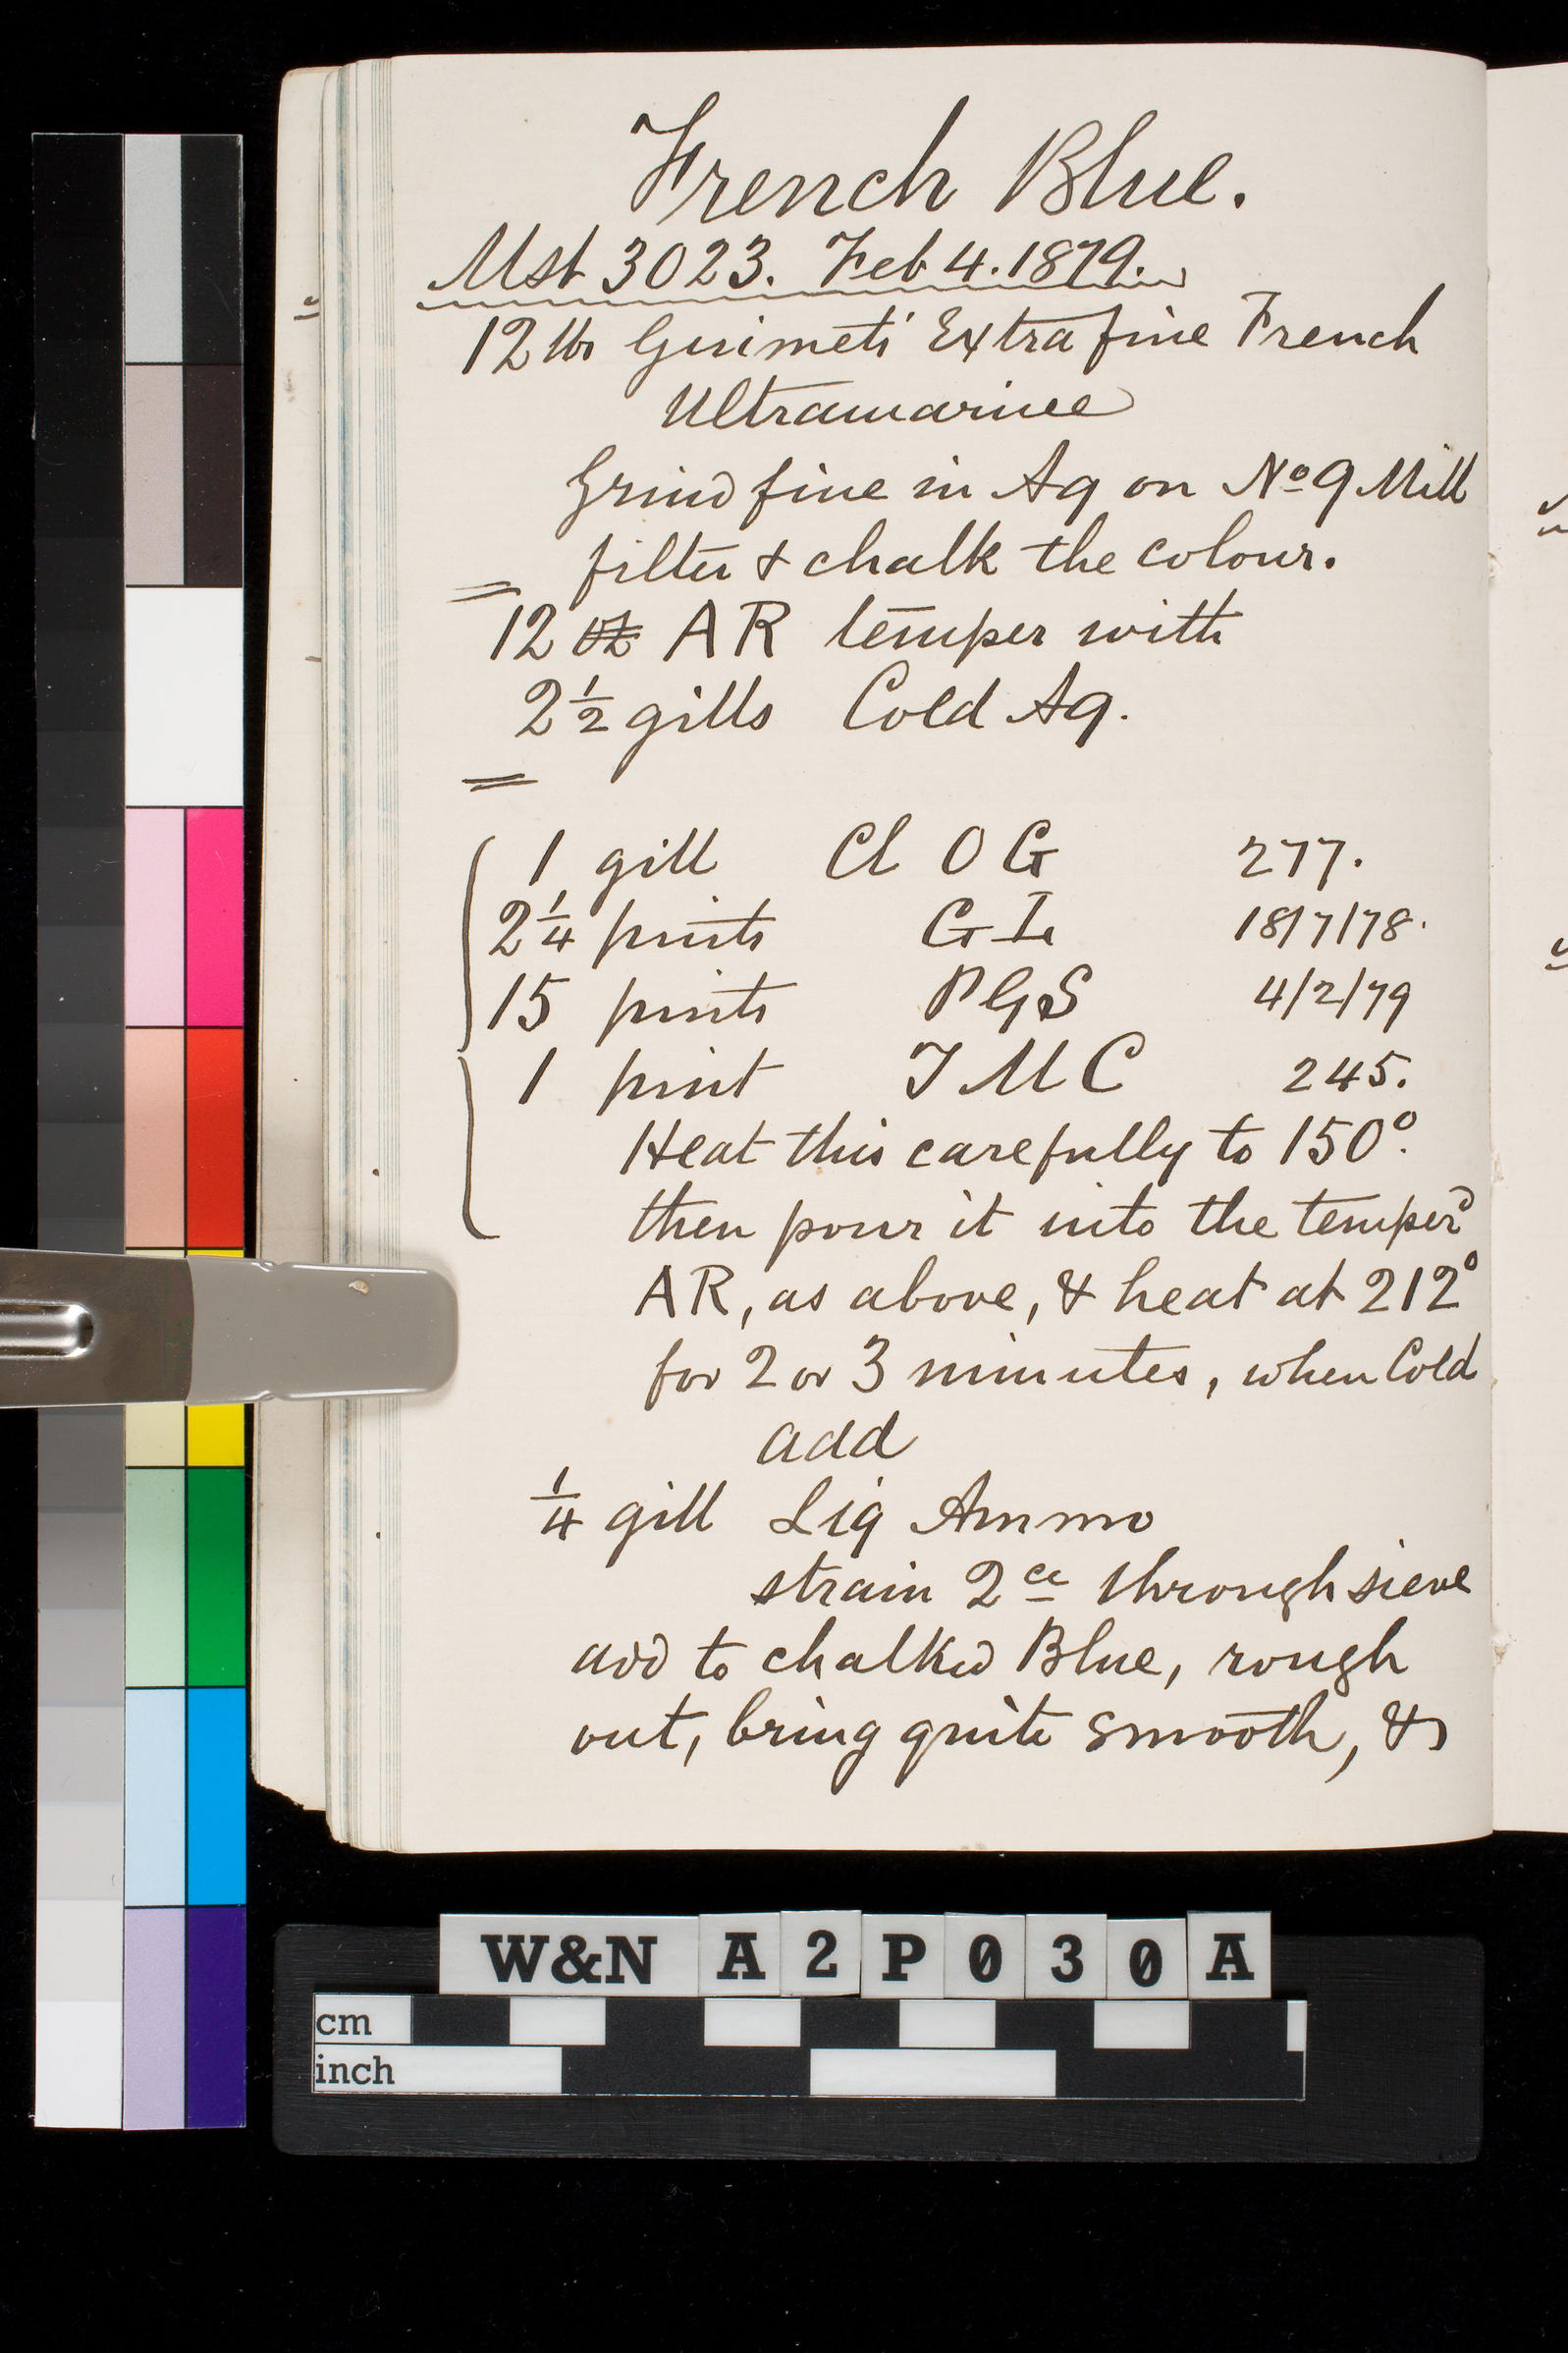 French Blue.
Mst 3023. Feb 4. 1879.
12 lbs Guimets' Extra fine French
Ultramarine
Grind fine in Aq on No 9 Mill
filter & chalk the colour.
12 oz AR temper with
2 1/2 gills Cold Aq.
1 gill Cl O G 277.
2 1/4 pints G I 18/7/78.
15 pints P G S 4/2/79
1 pint T M C 245.
Heat this carefully to 150°.
then pour it into the temperd
AR, as above, & heat at 212°
for 2 or 3 minutes, when Cold
add
1/4 gill Liq Ammo
strain 2ce through sieve
add to chalked Blue, rough
out, bring quite smooth, &
W&N A2P030A
cm
inch